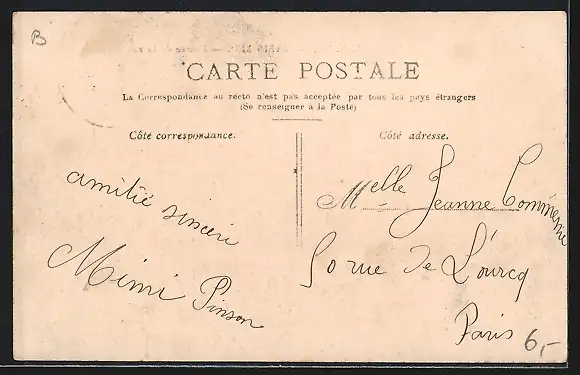 B
CARTE POSTALE
La Correspondance au recto n'est pas acceptée par tous les pays étrangers
(Se renseigner à la Poste)
Côté correspondance.
Côté adresse.
amitié sincère
Mimi Pinson
Melle Jeanne Commerme
50 rue de L'ourcq
Paris
6,-